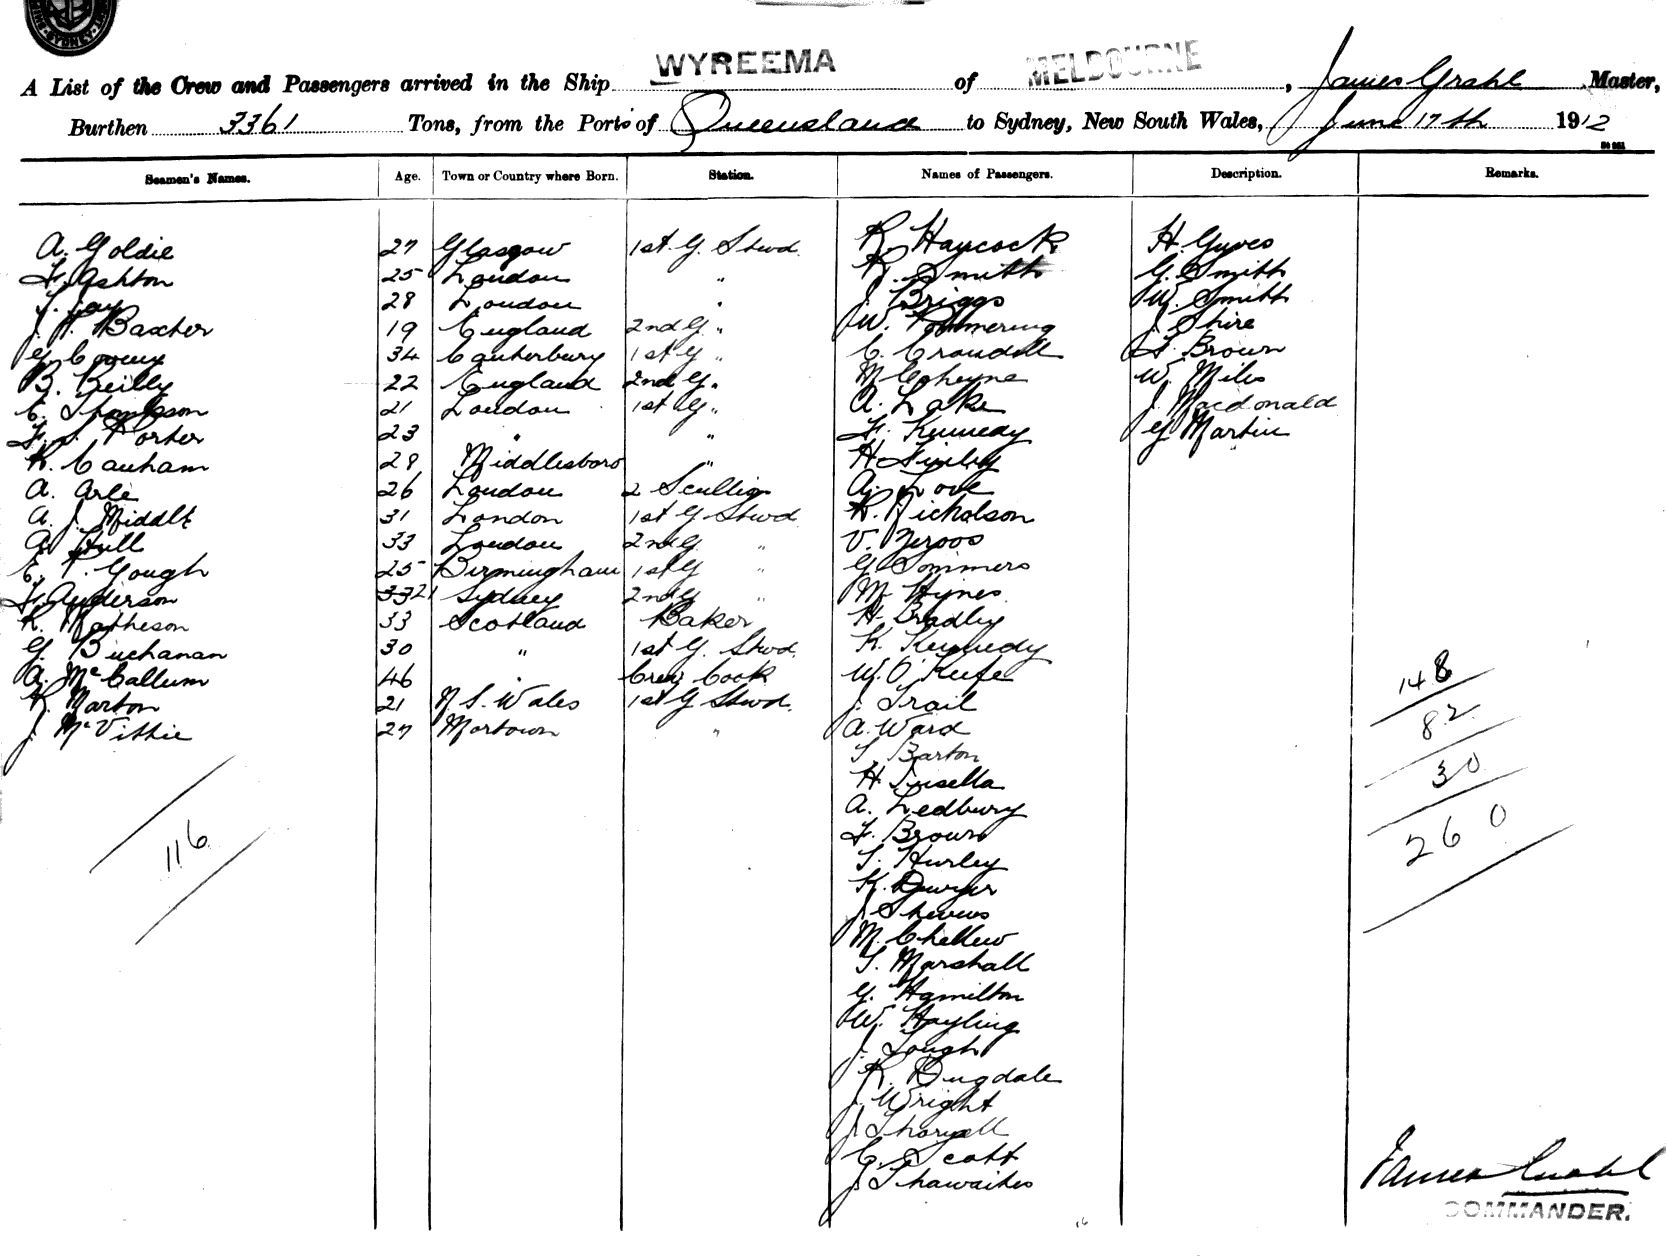 SYDNEY
WYREEMA MELBOURNE
A List of the Crew and Passengers arrived in the Ship WYREEMA of MELBOURNE, James Grahl Master,
Burthen 3361 Tons, from the Port of Queensland to Sydney, New South Wales, June 17th 1912
Seamen's Names. Age. Town or Country where Born. Station. Names of Passengers. Description. Remarks.
A. Goldie 27 Glasgow 1st G. Stwd. R. Haycock H. Gyves
F. Ashton 25 London " R. Smith G. Smith
28 London " J. Briggs W. Smith
J. H. Baxter 19 England 2nd G. " W. Pommering J. Shire
34 Canterbury 1st G " C. Crandell F. Brown
B. Reilly 22 England 2nd G. " M. Coheyne W. Miles
E. Thompson 21 London 1st G " A. Lake J. Macdonald
F. S. Porter 23 " " F. Kennedy G Martin
R. Canham 28 Middlesboro " H
A. Arle 26 London 2 Scullig A. Love
A. J. Middlt 31 London 1st G Stwd R. Nicholson
A. Hull 33 London 2nd G " V. Zervos
E. T. Gough 25 Birmingham 1st G " G. Sommers
F. Anderson 33 21 Sydney 2nd G " M. Hynes
R. Matheson 33 Scotland Baker H. Bradley
G. Buchanan 30 " 1st G. Stwd. K. Kennedy
A. McCallum 46 " Crew Cook W. O'Keefe
R. Marton 21 N. S. Wales 1st G Stwd. J. Trail
J. McVittie 27 " A. Ward
T. Barton
H. Tusella
A. Ledbury
F. Brown
T. Hurley
K. Dwyer
J.
M. Chellew
T. Marshall
G. Hamilton
W. Hayling
J. Lough
R. Dugdale
J. Wright
J.
E. Scott
J. Thawaites
116
148
82
30
260
James Grahl
COMMANDER.